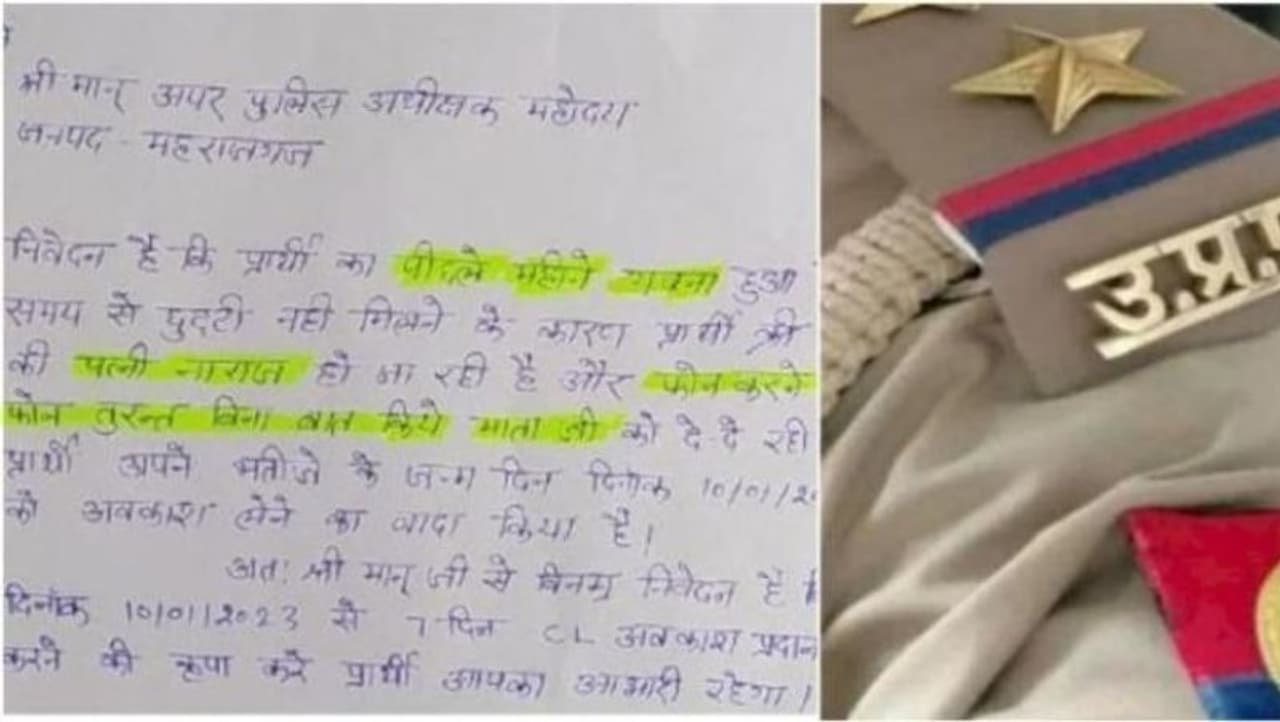 श्री मान् अपर पुलिस अधीक्षक महोदय
जनपद - महराजगज
निवेदन है कि प्रार्थी का पीछले महीने गवना हुआ
समय से छुट्टी नही मिलने के कारण प्रार्थी श्री
की पत्नी नाराज हो जा रही है और फोन करने
फोन तुरन्त बिना बात किये माता जी को दे दे रही
प्रार्थी अपने भतीजे के जन्म दिन दिनांक 10/01/2
को अवकाश लेने का वादा किया है।
अतः श्री मान् जी से विनम्र निवेदन है
दिनांक 10/01/2023 से 7 दिन CL अवकाश प्रदान
करने की कृपा करे प्रार्थी आपका आभारी रहेगा।
उ.प्र.